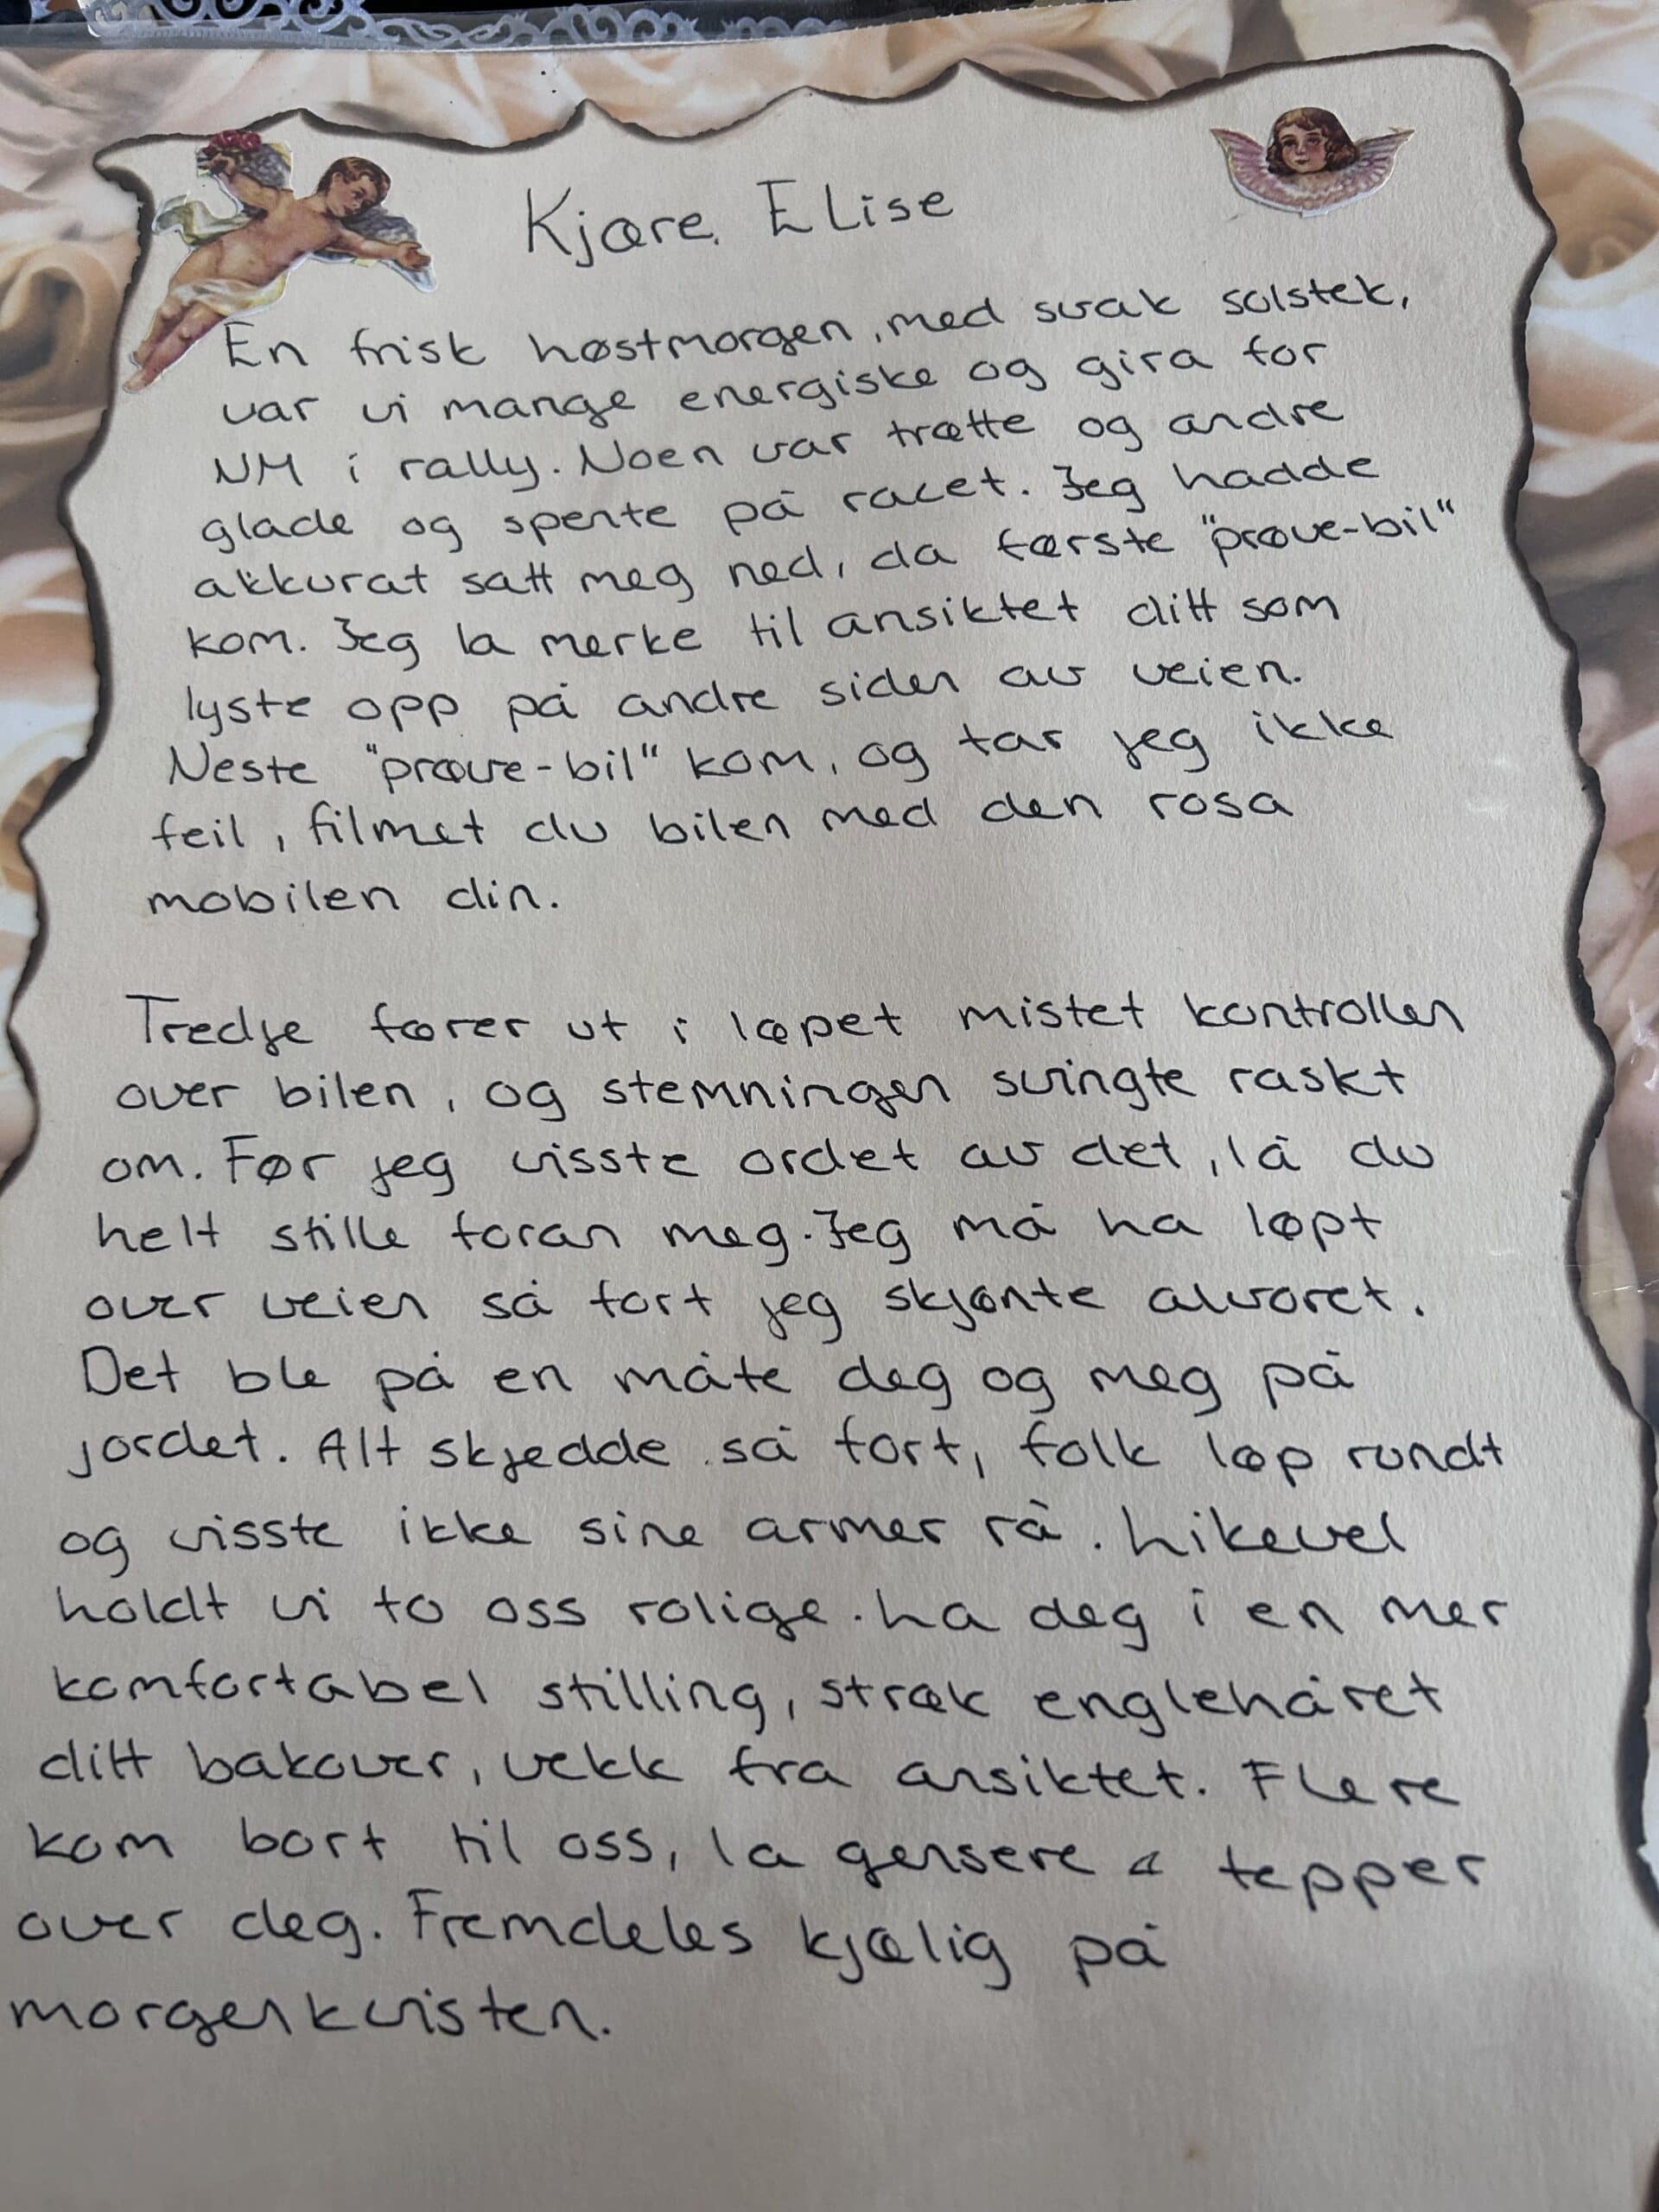 Kjære Elise
En frisk høstmorgen, med svak solstek,
var vi mange energiske og gira for
NM i rally. Noen var trøtte og andre
glade og spente på racet. Jeg hadde
akkurat satt meg ned, da første "prøve-bil"
kom. Jeg la merke til ansiktet ditt som
lyste opp på andre siden av veien.
Neste "prøve-bil" kom, og tar jeg ikke
feil, filmet du bilen med den rosa
mobilen din.
Tredje fører ut i løpet mistet kontrollen
over bilen, og stemningen svingte raskt
om. Før jeg visste ordet av det, lå du
helt stille foran meg. Jeg må ha løpt
over veien så fort jeg skjønte alvoret.
Det ble på en måte deg og meg på
jordet. Alt skjedde så fort, folk løp rundt
og visste ikke sine armer rå. Likevel
holdt vi to oss rolige. La deg i en mer
komfortabel stilling, strøk englehåret
ditt bakover, vekk fra ansiktet. Flere
kom bort til oss, la gensere & tepper
over deg. Fremdeles kjølig på
morgenkvisten.